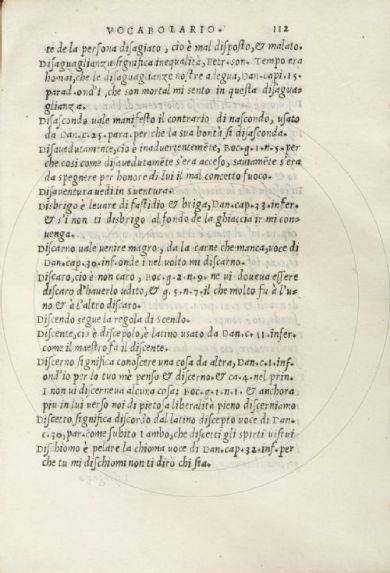 VOCABOLARIO. 112
te de la persona disagiato, cio è mal disposto, & malato.
Disaguaglianza significa inequalità, Petr. son. Tempo era
homai, che le disaguaglianze nostre adegua, Dan. cap. 15.
parad. ond'i, che son mortal mi sento in questa disagua
glianza.
Disascondo uale manifesto il contrario di nascondo, usato
da Dan. c. 25. para. per che la sua bontà si disasconda.
Disauedutamente, cio è inaduertentemẽte, Boc. g. 1. n. 5. per
che cosi come disauedutamẽte s'era acceso, sauiamẽte s'era
da spegnere per honore di lui il mal concetto fuoco.
Disauentura uedi in S uentura.
Disbrigo è leuare di fastidio & briga, Dan. cap. 33. infer.
& s'i non ti disbrigo al fondo de la ghiaccia ir mi con-
uenga.
Discarno uale uenire magro, da la carne che manca, uoce di
Dan. cap. 30. inf. onde i nel uolto mi discarno.
Discaro, cio è non caro, Boc. g. 2. n. 9. ne ui doueua essere
discaro d'hauerlo udito, & g. 5. n. 7. il che molto fu à l'u-
no & à l'altro discaro.
Discendo segue la regola di Scendo.
Discente, cio è discepolo, è latino usato da Dan. c. 11. infer.
come il maestro fà il discente.
Discerno significa conoscere una cosa da altra, Dan. c. 1. inf.
ond'io per lo tuo mè penso & discerno. & ca. 4. nel prin.
i non ui discerneua alcuna cosa: Boc. g. 1. n. 1. & anchora
piu in lui uerso noi di pietosa liberalità pieno discerniamo
Discetto significa discordo dal latino discepto uoce di Dan.
c. 30. par. come subito lambo, che discetti gli spirti uisiui
Dischiomo è pelare la chioma uoce di Dan. cap. 32. inf. per
che tu mi dischiomi non ti dirò chi sia.